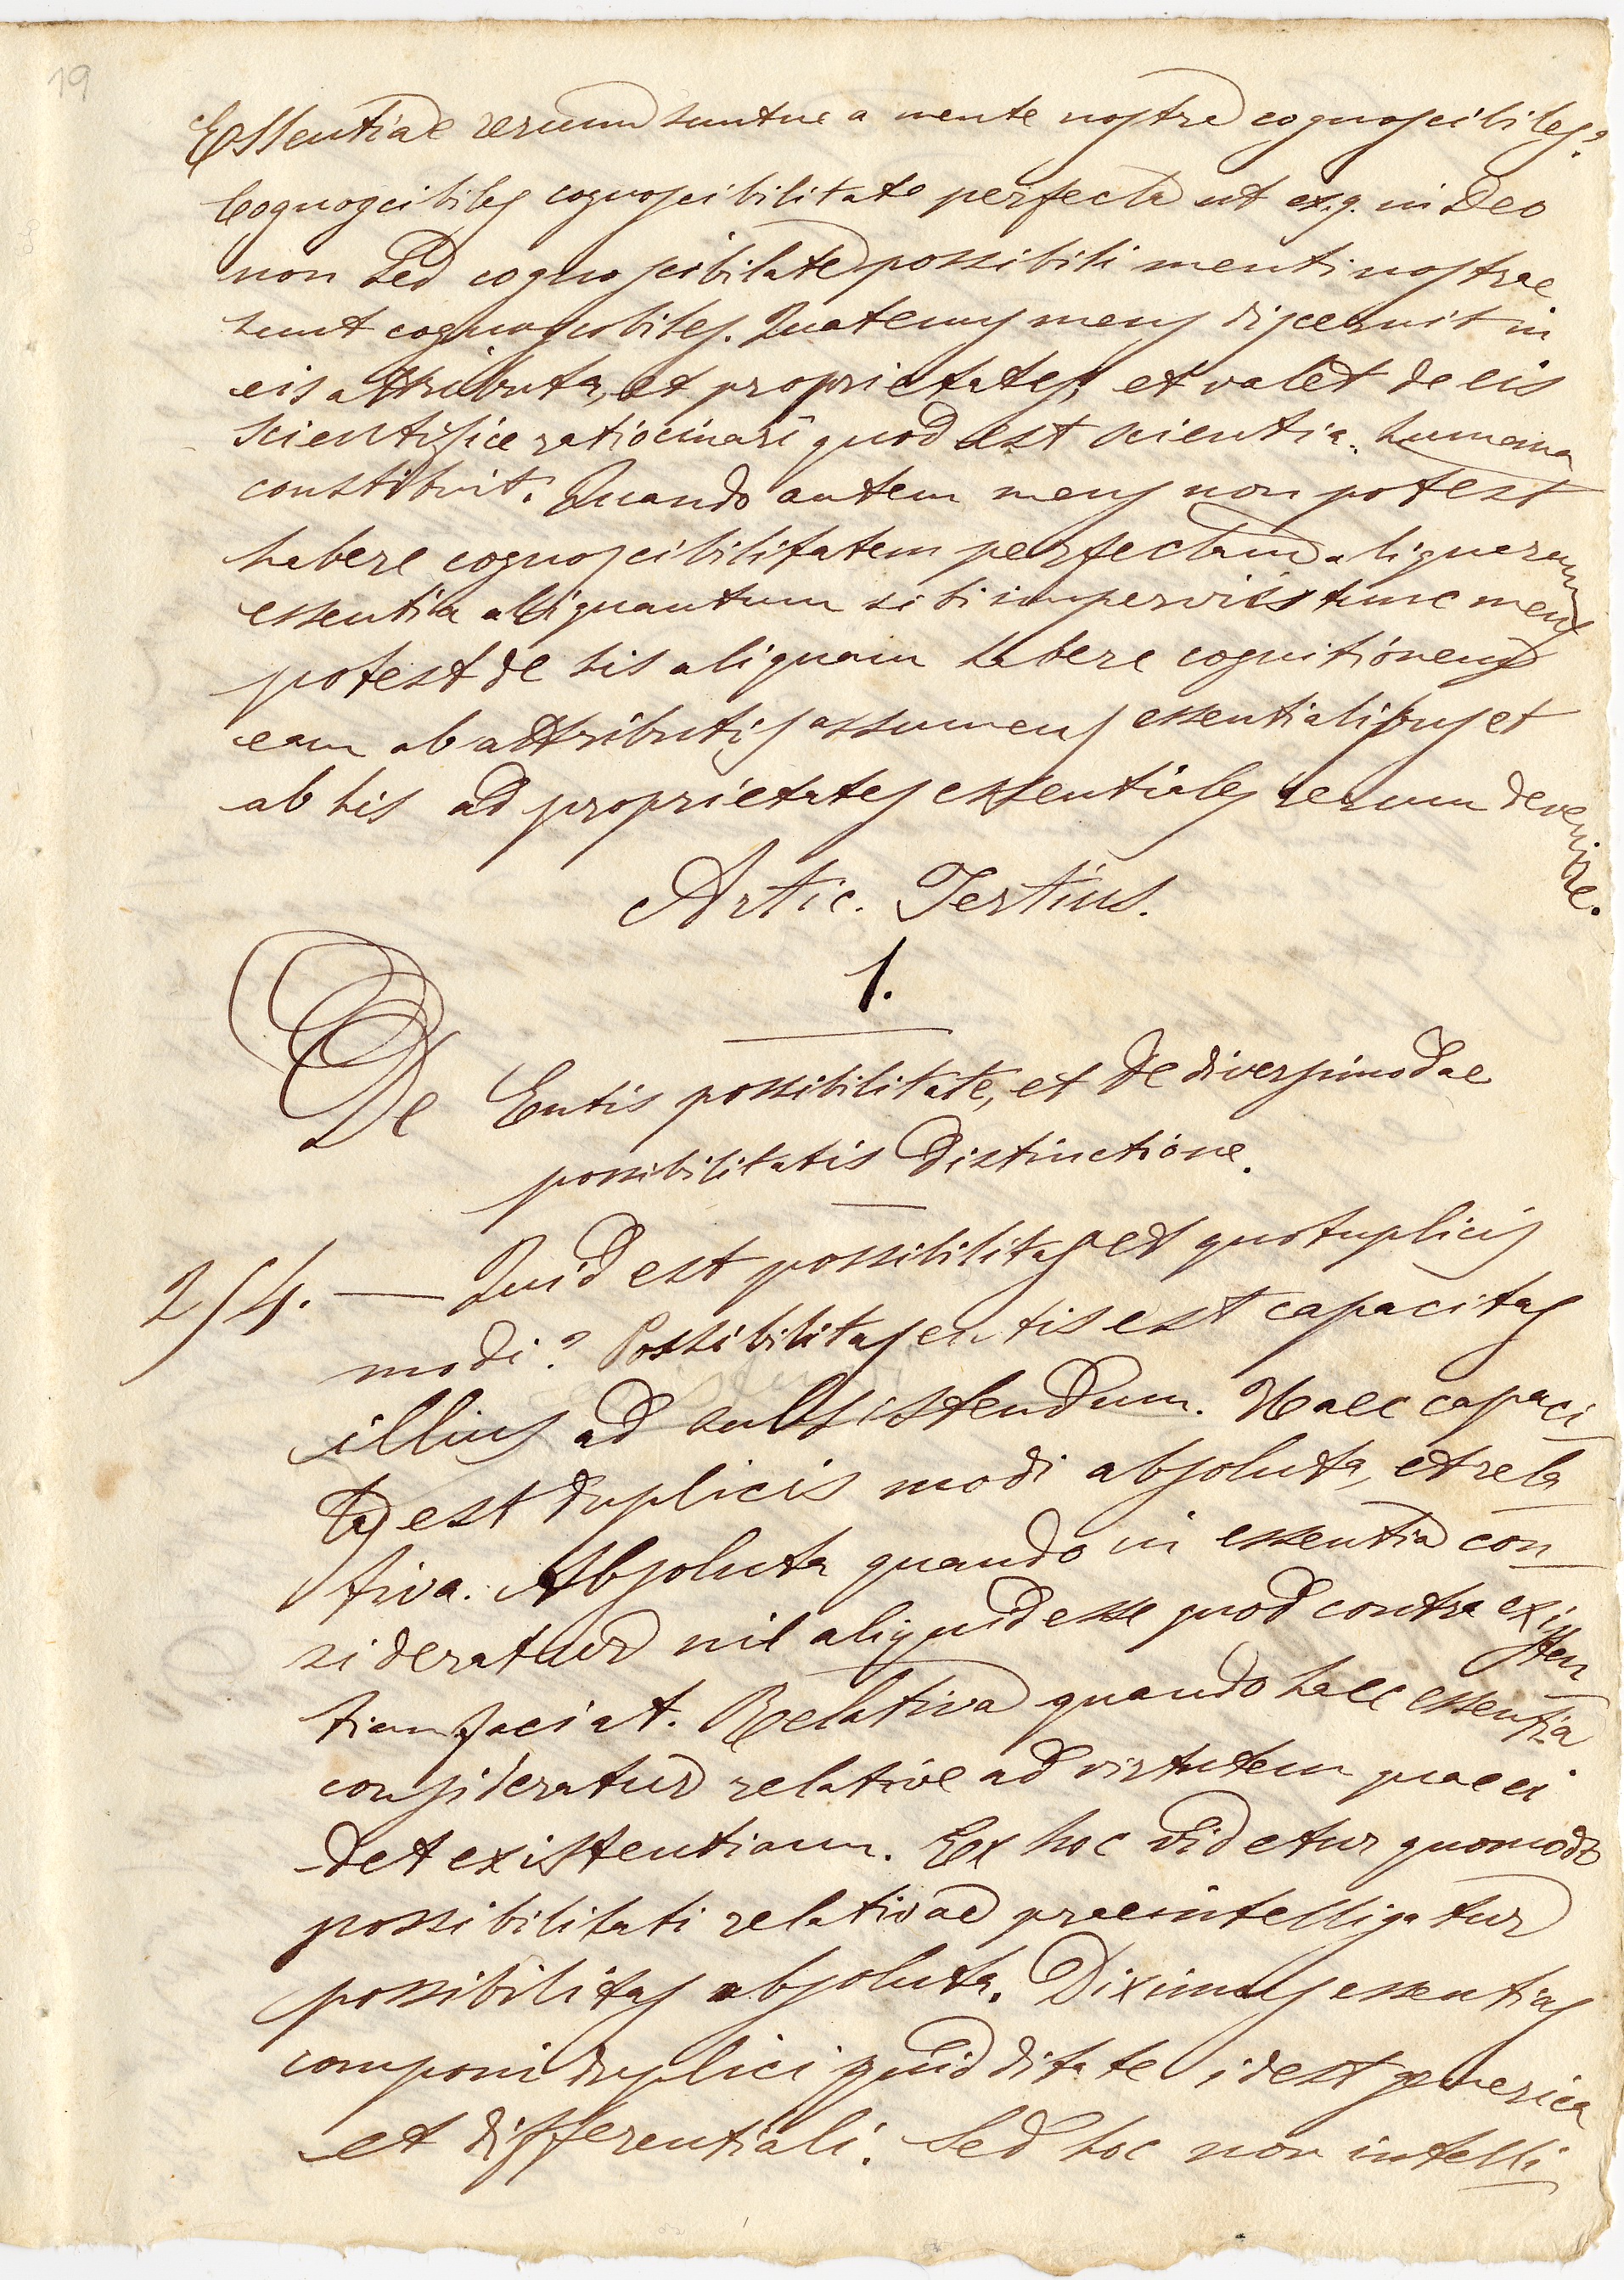 19
Essentiae rerum suntne a mente nostra cognoscibiles?
Cognoscibiles cognoscibilitate perfecta ut ex.g. in Deo
non sed cognoscibilate possibili menti nostrae
sunt cognoscibiles. Quatenus mens discernit in
eis attributa, et proprietates, et valet de eis
scientifice ratiocinari quod est scientia humana
constituit. Quando autem mens non potest
habere cognoscibilitatem perfectam aliquarum
essentia aliquantum sibi imperviis tunc mens
potest de his aliquam habere cognitionem
eam ab attributis assumens essentialibus et
ab his ad proprietates essentiales rerum devenire.
Artic. Tertius.
1.
De Entis possibilitate, et de diversimodae
possibilitatis distinctione.
2/4. — Quid est possibilitas et quotuplicis
modi? Possibilitas entis est capacitas
illius ad subsistendum. Haec capaci
tas est duplicis modi absoluta, et rela
tiva. Absoluta quando in essentia con
sideratur nil aliquid esse quod contra existen
tiam faciat. Relativa quando haec essentia
consideratur relative ad virtutem quae ei
det existentiam. Ex hoc videtur quomodo
possibilitati relativae praeintelligatur
possibilitas absoluta. Diximus essentias
componi duplici quidditate idest generica
et differentiali. Sed hoc non intelli